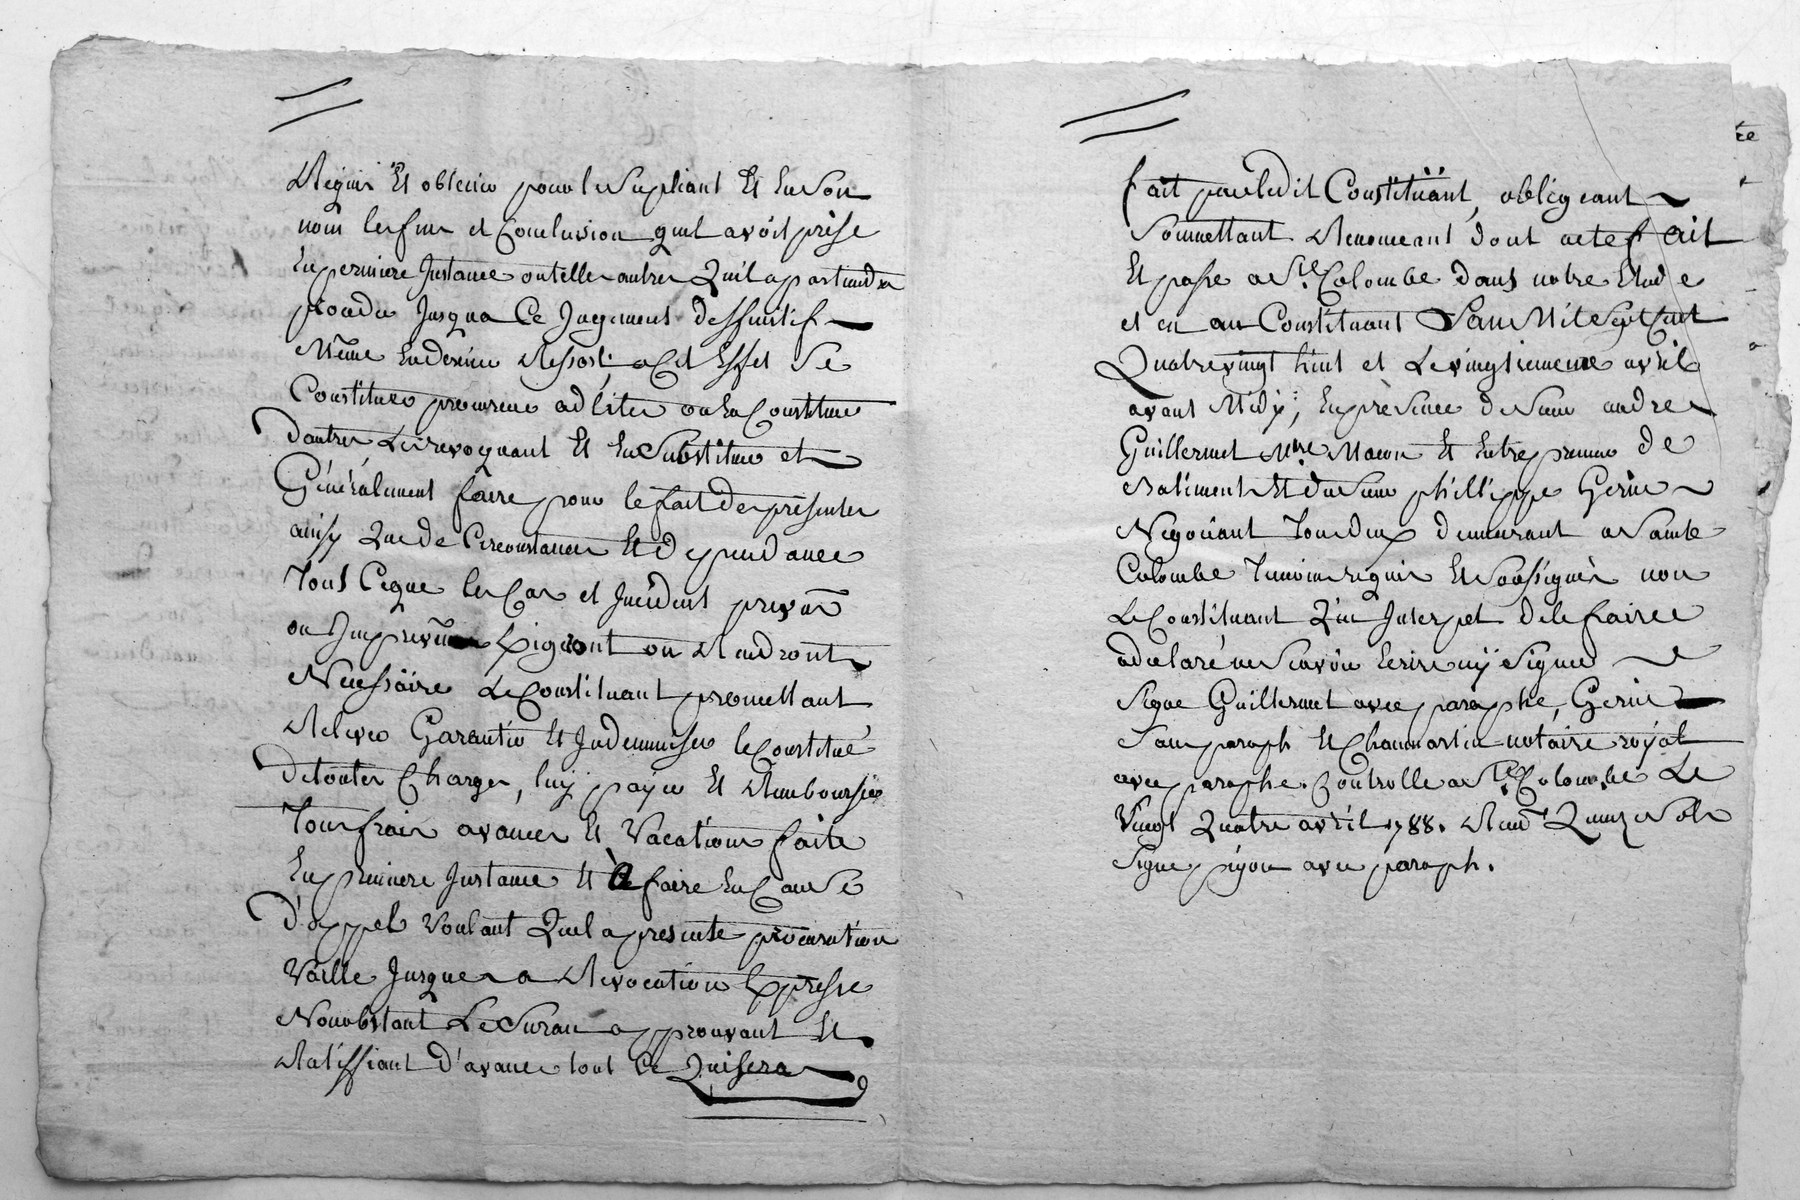 Requis Et obtenir pour le supliant Et En son
nom les fins et Conclusion quil avoit prise
En permiere Instance ou telles autres Quil apartiendra
proceder Jusqua Ce Jugement deffinitif
Même En dernier Ressort, a Cet Effet Se
Constituer procureur ad lites ou En Constituer
d'autres, Les revoquant Et En Substituer et
Généralement faire pour le fait des présentes
ainsy Que de Circonstances Et dependance
Tous Ceque les Cas et Incidens prevus
ou Imprevus Exigeront ou Rendront
Nécessaire Le Constituant promettant
Relever Garantir Et Indemniser le Constitué
de toutes Charges, luy payer Et Rembourser
Tous frais avances Et Vacations faite
En premiere Instance Et à faire En Cause
d'appel Voulant Que la presente procuration
Vaille Jusques a Revocation Expresse
Nonobstant Le Suran approuvant Et
Ratiffiant d'avance tout Ce Qui sera
fait par ledit Constituant, obligeant
Soumettant Renonceant dont acte fait
Et passé a Ste Colombe dans notre Etude
et en au Constituant L'an Mil Sept Cent
Quatrevingt huit et Le vingtieme avril
avant Midy, En présence de Sieur andre
Guillermet Mtre Macon Et Entrepreneur de
Batiments Et de Sieur phillippe Gerin
Negociant Tous deux demeurant a Sainte
Colombe Temoins requis Et Soussignés non
Le Constituant Qui Interpelé de le faire
a declaré ne Scavoir Ecrire ny Signer
Signe Guillermet avec paraphe, Gerin
Sans paraph Et Chaumartin notaire royal
avec paraphe. Controlle a Ste Colombe Le
Vingt Quatre avril 1788. Recu Quinze Sols
Signe pejou avec paraph.